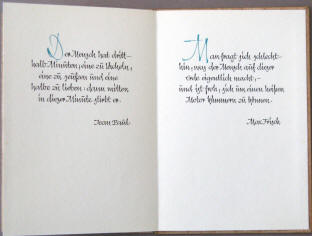 Der Mensch hat dritt-
halb Minuten, eine zu lächeln,
eine zu seufzen und eine
halbe zu lieben; denn mitten
in dieser Minute stirbt er.
Jean Paul
Man fragt sich schlecht-
hin, was der Mensch auf dieser
Erde eigentlich macht,-
und ist froh, sich um einen heißen
Motor kümmern zu können.
Max Frisch